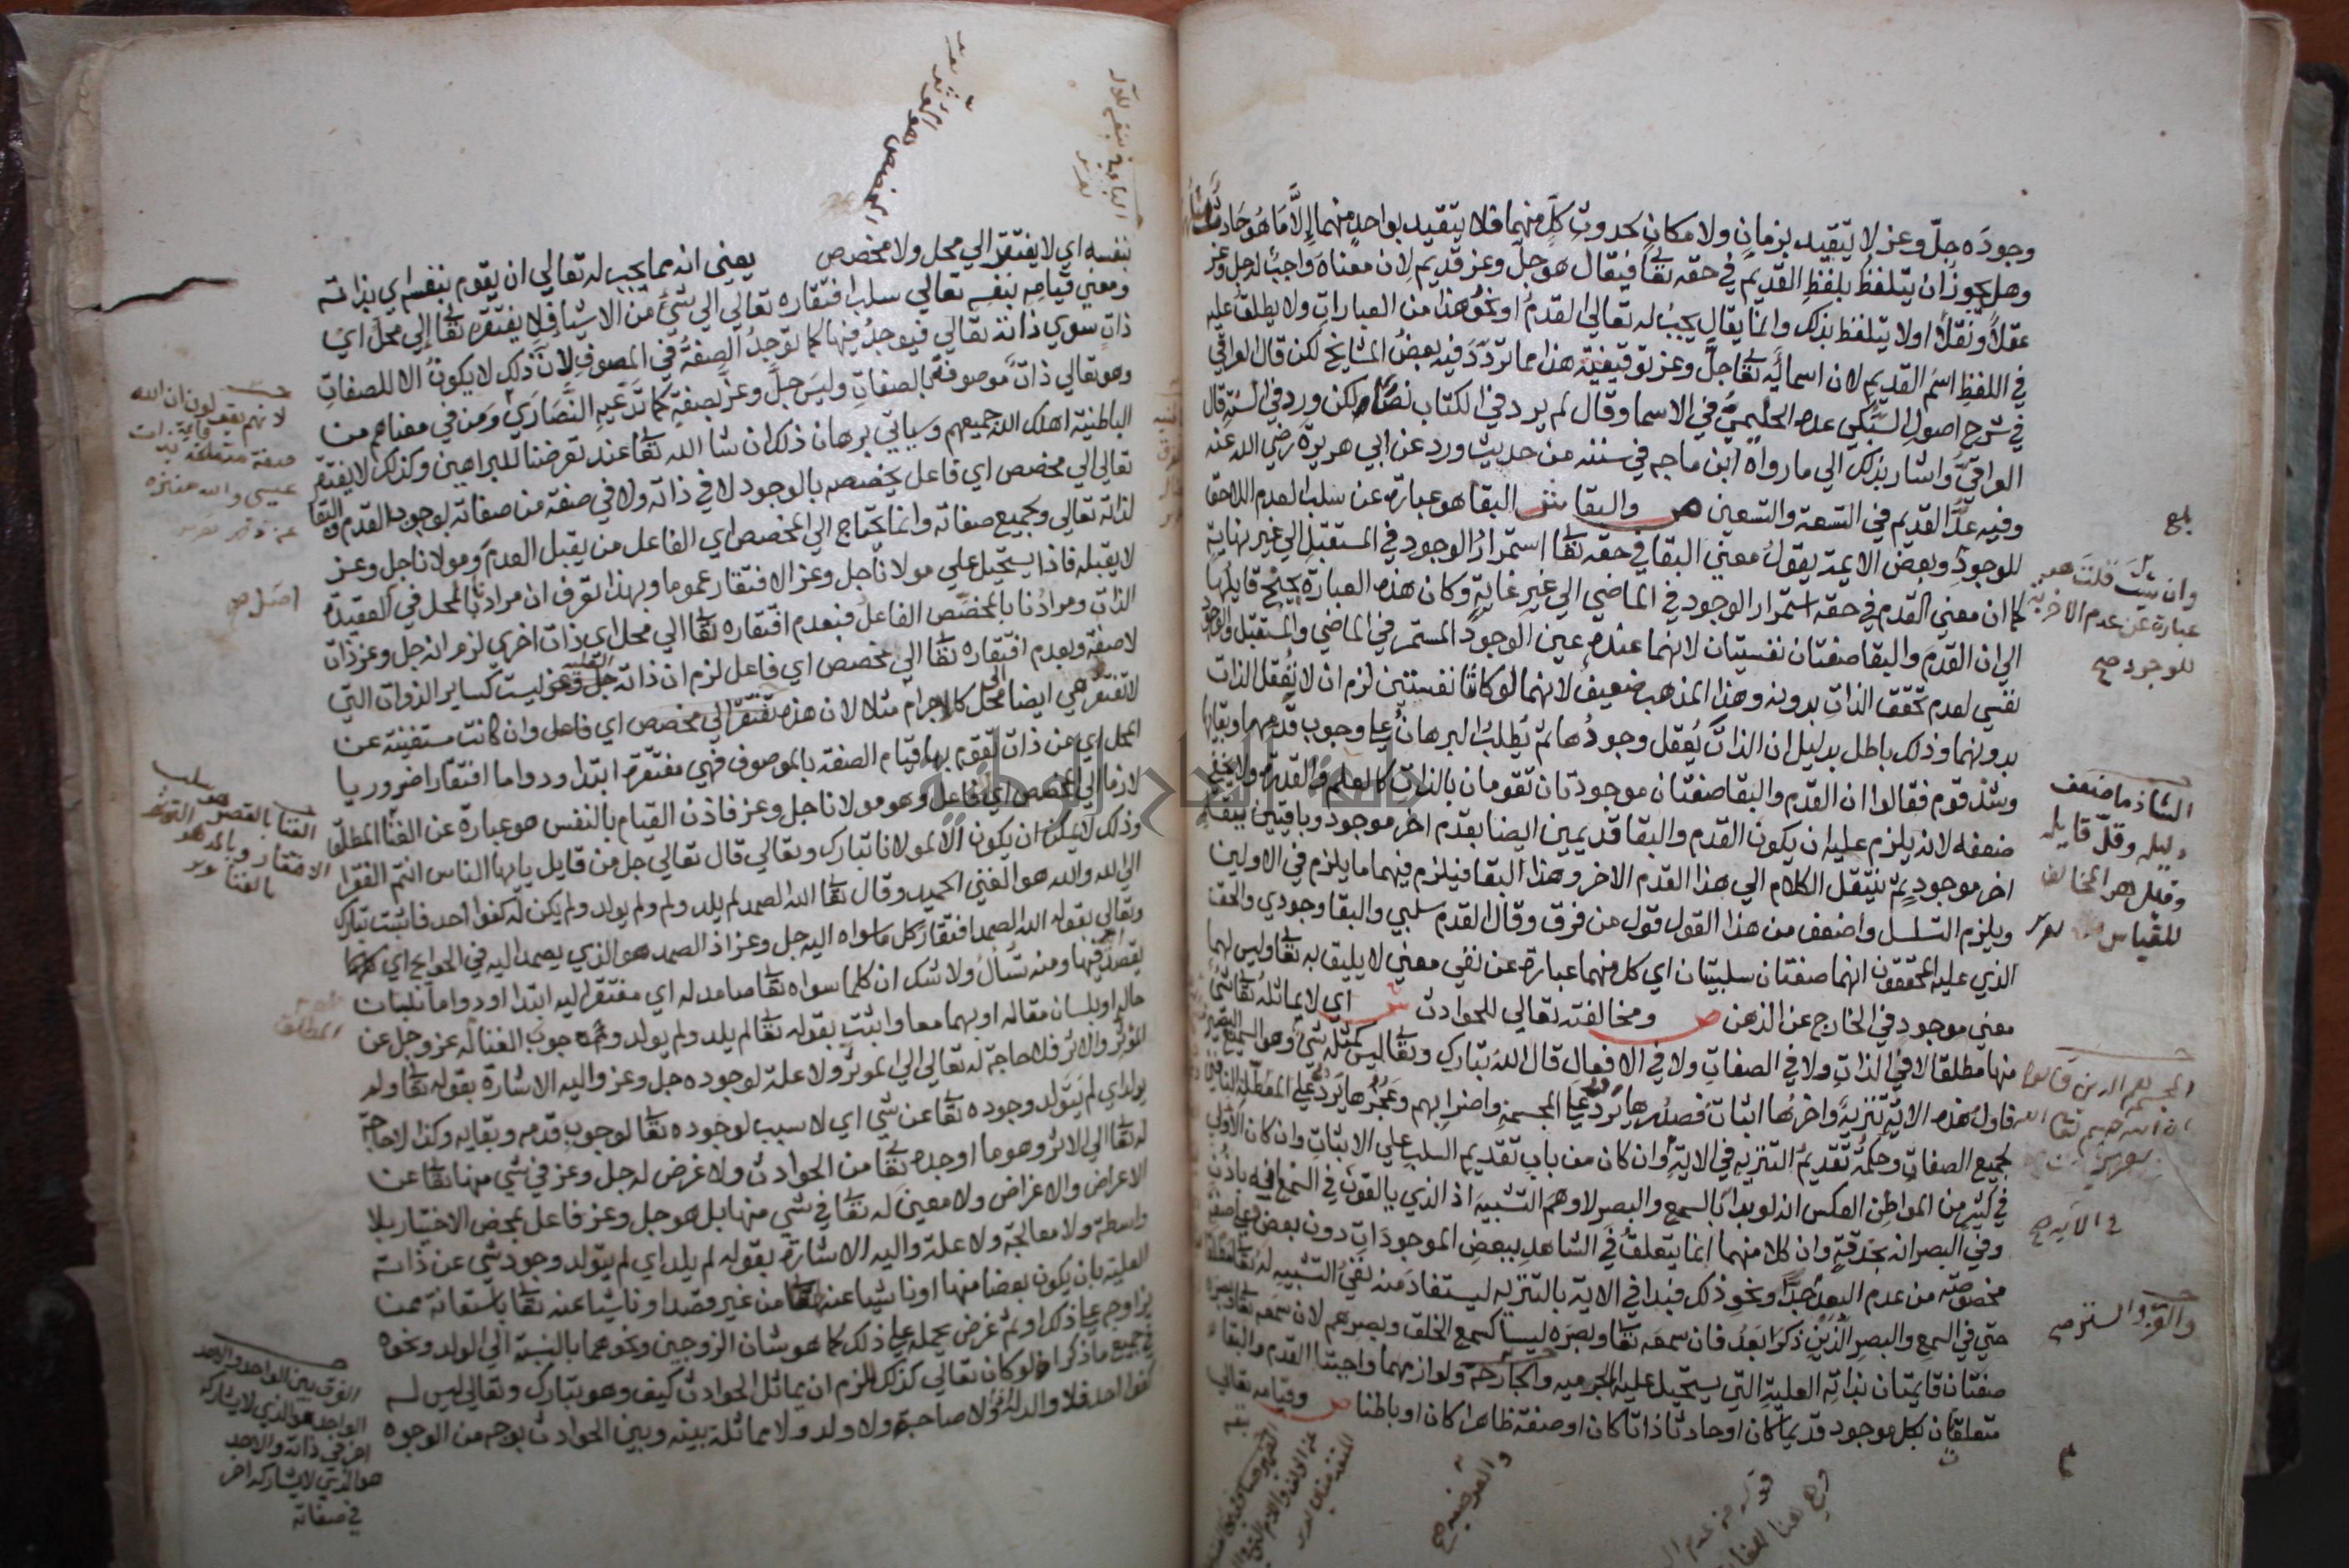 وجوده جلّ وعز لا يتقيد بزمان ولا مكان لحدوث كلّ منهما فلا يتقيد بواحد منهما إلّا ما هو حادث
وهل يجوز أن يتلفظ بلفظ القديم في حقه تعا فيقال هو جلّ وعز قديم لان معناه واجب له جل وعز
عقلاً ونقلاً اولا يتلفظ بذلك وانما يقال يجب له تعالي القدم او نحو هذا من العبارات ولا يطلق عليه
في اللفظ اسم القديم لان اسمائه تعا جلّ وعز توقيفية هذا مما تردّد فيه بعض المشايخ لكن قال العراقي
في شرح اصول السبكي عده الحليمي في الاسما وقال لم يرد في الكتاب نصّا ولكن ورد في السنة قال
العراقي واشار بذلك الي ما رواه ابن ماجه في سننه من حديث ورد عن ابي هريرة رضي الله عنه
وفيه عدّ القديم في التسعة والتسعين ص والبقا ش البقا هو عبارة عن سلب العدم اللاحق
للوجود وبعض الايمة يقول معني البقا في حقه تعا استمرار الوجود في المستقبل الي غير نهاية
كما ان معني القدم في حقه استمرار الوجود في الماضي الي غير غاية وكان هذه العبارة يجنح قايلها
الي ان القدم والبقا صفتان نفسيتان لانهما عنده عين الوجود المستمر في الماضي والمستقبل والوجود
نفسي لعدم تحقق الذات بدونه وهذا المذهب ضعيف لانهما لو كانا نفسيتين لزم ان لا تُعقل الذات
بدونهما وذلك باطل بدليل ان الذات يُعقل وجودُها ثم يُطلبُ البرهان علي وجوب قدمها وبقايها
وشذ قوم فقالوا ان القدم والبقا صفتان موجودتان تقومان بالذات كالعلم والقدرة ولا يخفي
ضعفه لانه يلزم عليه ان يكون القدم والبقا قديمين ايضا بقدم اخر موجود وباقيين ببقاء
اخر موجود ثم ينتقل الكلام الي هذا القدم الاخر وهذا البقا فيلزم فيهما ما يلزم في الاولين
ويلزم التسلسل واضعف من هذا القول قول من فرق وقال القدم سلبي والبقا وجودي والحق
الذي عليه المحققون انهما صفتان سلبيتان اي كل منهما عبارة عن نفي معني لا يليق به تعا وليس لهما
معني موجود في الخارج عن الذهن ص ومخالفته تعالي للحوادث ش اي لا يماثله تعا شي
منها مطلقا لا في الذات ولا في الصفات ولا في الافعال قال الله تبارك وتعا ليس كمثله شي وهو السميع البصير
فاول هذه الاية تنزيه واخرها اثبات فصدرها يرد علي المجسمة واضرابهم وعجزها يرد علي المعطلة النافين
لجميع الصفات وحكمة تقديم التنزيه في الاية وان كان من باب تقديم السلب علي الاثبات وان كان الاولي
في كثير من المواطن العكس انه لو بدأ بالسمع والبصر لاوهم التشبيه اذ الذي يالفون في السمع انه باذن
وفي البصر انه بحدقة وان كلا منهما انما يتعلق في الشاهد ببعض الموجودات دون بعض
مخصوصة من عدم البعد جدّا ونحو ذلك فبدا في الاية بالتنزيه ليستفاد منه نفي التشبيه له تعا
حتي في السمع والبصر الذين ذكرا بعد فان سمعه تعا وبصره ليسا كسمع الخلق وبصرهم لان سمعه تعا وبصره
صفتان قايمتان بذاته العلية التي يستحيل عليها الجرمية والجارحة ولوازمهما واجبتا القدم والبقاء
متعلقان بكل موجود قديما كان او حادثا ذاتا كان او صفة ظاهرا كان او باطنا ص وقيامه تعالي
بلغ
وان شئت قلت هو
عبارة عن عدم الاخرية
للوجود صح
الشاذ ما ضعف
دليله وقلّ قايله
وقيل هو المخالف
للقياس
في الاية صح
بنفسه اي لا يفتقر الي محل ولا مخصص يعني انه مما يجب له تعالي ان يقوم بنفسه اي بذاته
ومعني قيامه بنفسه تعالي سلب افتقاره تعالي الي شي من الاشيا فلا يفتقر تعا الي محل اي
ذات سوي ذاته تعالي فيوجد فيها كما توجد الصفة في الموصوف لان ذلك لا يكون الا للصفات
وهو تعالي ذات موصوفة بالصفات وليس جلّ وعز بصفة كما تدّعيه النصاري ومن في معناهم من
الباطنية اهلك الله جميعهم وسياتي برهان ذلك ان شا الله تعا عند تعرضنا للبراهين وكذلك لا يفتقر
تعالي الي مخصص اي فاعل يخصصه بالوجود لا في ذاته ولا في صفة من صفاته لوجود القدم والبقا
لذاته تعالي ولجميع صفاته وانما يحتاج الي المخصص اي الفاعل من يقبل العدم ومولانا جل وعز
لا يقبله فاذا يستحيل علي مولانا جل وعز الافتقار عموما وبهذا تعرف ان مرادنا بالمحل في العقيدة
الذات ومرادنا بالمخصص الفاعل فبعدم افتقاره تعا الي محل اي ذات اخري لزم انه جل وعز ذات
لا صفة وبعدم افتقاره تعا الي مخصص اي فاعل لزم ان ذاته العلية جل وعز ليست كساير الذوات التي
لا تفتقر هي ايضا الي محل كالاجرام مثلا لان هذه تفتقر الي مخصص اي فاعل وان كانت مستغنية عن
المحل اي عن ذات تقوم بها قيام الصفة بالموصوف فهي مفتقرة ابتداء ودواما افتقارا ضروريا
لازما الي المخصص اي الفاعل وهو مولانا جل وعز فاذن القيام بالنفس هو عبارة عن الغنا المطلق
وذلك لا يمكن ان يكون الا لمولانا تبارك وتعالي قال تعالي جل من قايل يايها الناس انتم الفقرا
الي الله والله هو الغني الحميد وقال تعا الله الصمد لم يلد ولم يولد ولم يكن له كفوا احد فاثبت تبارك
وتعالي بقوله الله الصمد افتقار كل ما سواه اليه جل وعز اذ الصمد هو الذي يصمد اليه في الحوايج اي
يقصد فيها ومنه تسال ولا شك ان كلما سواه تعا صامد له اي مفتقر اليه ابتدا ودواما بلسان
حاله او بلسان مقاله او بهما معا واثبت بقوله تعا لم يلد ولم يولد وجوب الغنا له عز وجل عن
المؤثر والاثر فلا حاجة له تعالي الي المؤثر ولا علة لوجوده جل وعز واليه الاشارة بقوله تعا ولم
يولد اي لم يتولد وجوده تعا عن شي اي لا سبب لوجوده تعا لوجوب قدمه وبقايه وكذا لا حاجة
له تعا الي الاثر وهو ما اوجده تعا من الحوادث ولا غرض له جل وعز في شي منها تعا عن
الاعراض والاغراض ولا معين له تعا في شي منها بل هو جل وعز فاعل بمحض الاختيار بلا
واسطة ولا معالجة ولا علة واليه الاشارة بقوله لم يلد اي لم يتولد وجود شي عن ذاته
العلية بان يكون بعضا منها او ناشيا عنها من غير قصد او ناشيا عنه تعا باستعانة ممن
يزاوجه علي ذلك او ثم غرض يحمله علي ذلك كما هو شان الزوجين ونحوهما بالنسبة الي الولد ونحوه
في جميع ما ذكر اذ لو كان تعالي كذلك للزم ان يماثل الحوادث كيف وهو تبارك وتعالي ليس له
كفوا احد فلا والد له ولا صاحبة ولا ولد ولا مماثلة بينه وبين الحوادث بوجه من الوجوه
لانهم يقولون ان الله
الفرق بين الواحد والاحد
الواحد هو الذي لا يشاركه
احد في ذاته والاحد
هو الذي لا يشاركه احد
في صفاته
جامعة النجاح الوطنية